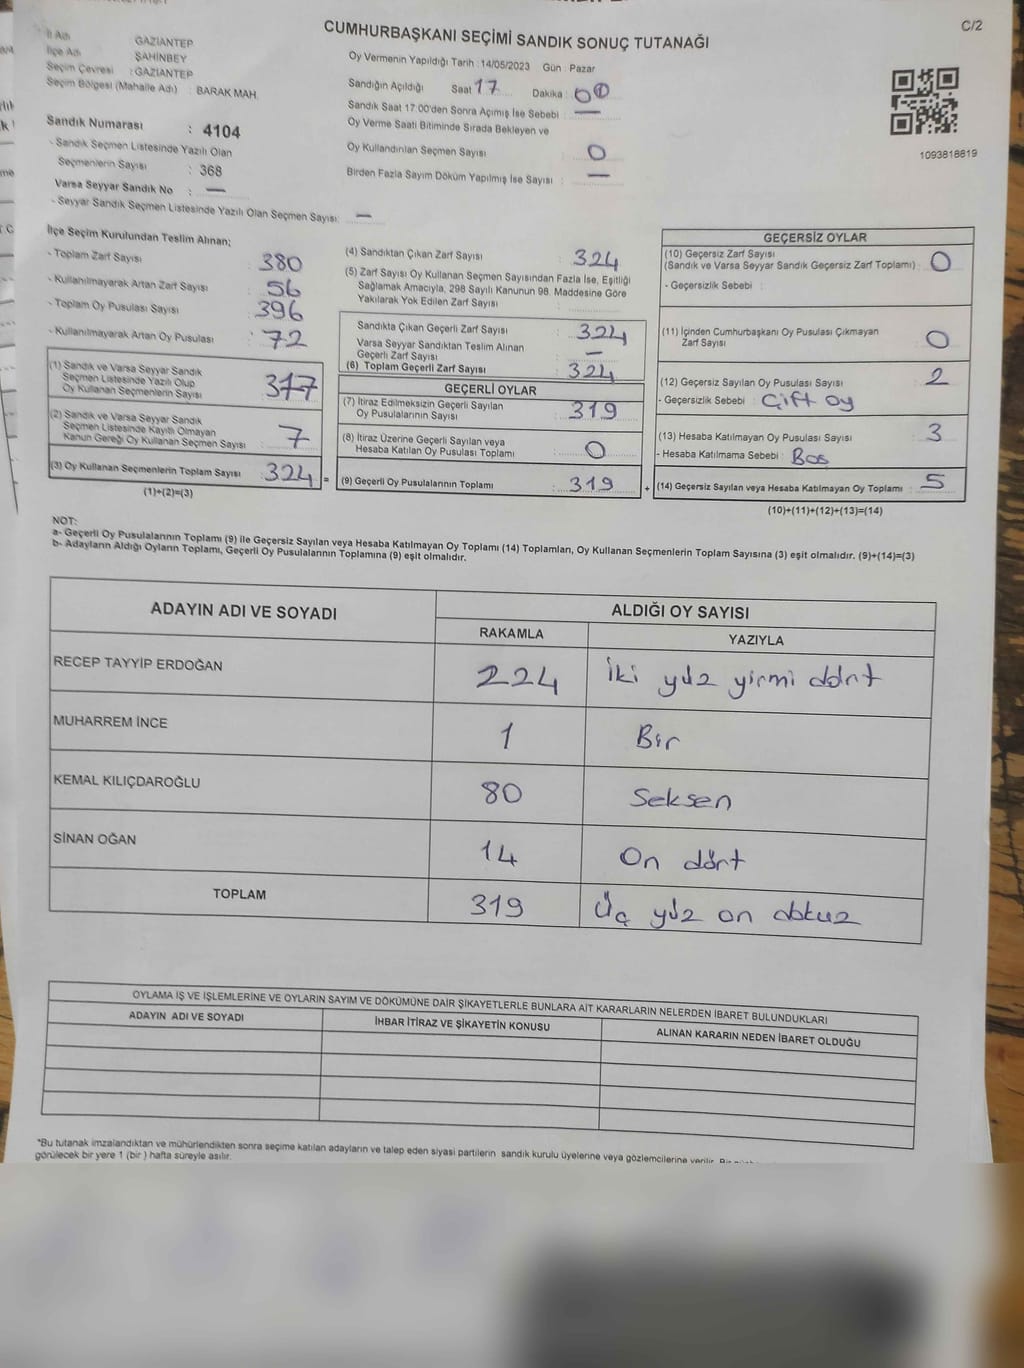 C/2
CUMHURBAŞKANI SEÇİMİ SANDIK SONUÇ TUTANAĞI
İl Adı GAZİANTEP
İlçe Adı ŞAHİNBEY
Seçim Çevresi : GAZİANTEP
Seçim Bölgesi (Mahalle Adı) : BARAK MAH.
Oy Vermenin Yapıldığı Tarih : 14/05/2023 Gün : Pazar
Sandığın Açıldığı Saat 17 Dakika : 00
Sandık Saat 17:00'den Sonra Açımış İse Sebebi : —
Oy Verme Saati Bitiminde Sırada Bekleyen ve
Oy Kullandırılan Seçmen Sayısı : 0
Birden Fazla Sayım Döküm Yapılmış İse Sayısı : —
1093818819
Sandık Numarası : 4104
- Sandık Seçmen Listesinde Yazılı Olan
Seçmenlerin Sayısı : 368
Varsa Seyyar Sandık No : —
- Seyyar Sandık Seçmen Listesinde Yazılı Olan Seçmen Sayısı: —
İlçe Seçim Kurulundan Teslim Alınan;
- Toplam Zarf Sayısı : 380
- Kullanılmayarak Artan Zarf Sayısı : 56
- Toplam Oy Pusulası Sayısı : 396
- Kullanılmayarak Artan Oy Pusulası : 72
(1) Sandık ve Varsa Seyyar Sandık
Seçmen Listesinde Yazılı Olup
Oy Kullanan Seçmenlerin Sayısı : 317
(2) Sandık ve Varsa Seyyar Sandık
Seçmen Listesinde Kayıtlı Olmayan
Kanun Gereği Oy Kullanan Seçmen Sayısı : 7
(3) Oy Kullanan Seçmenlerin Toplam Sayısı : 324 =
(1)+(2)=(3)
(4) Sandıktan Çıkan Zarf Sayısı : 324
(5) Zarf Sayısı Oy Kullanan Seçmen Sayısından Fazla İse, Eşitliği
Sağlamak Amacıyla, 298 Sayılı Kanunun 98. Maddesine Göre
Yakılarak Yok Edilen Zarf Sayısı :
Sandıkta Çıkan Geçerli Zarf Sayısı : 324
Varsa Seyyar Sandıktan Teslim Alınan
Geçerli Zarf Sayısı : —
(6) Toplam Geçerli Zarf Sayısı : 324
GEÇERLİ OYLAR
(7) İtiraz Edilmeksizin Geçerli Sayılan
Oy Pusulalarının Sayısı : 319
(8) İtiraz Üzerine Geçerli Sayılan veya
Hesaba Katılan Oy Pusulası Toplamı : 0
(9) Geçerli Oy Pusulalarının Toplamı : 319 +
GEÇERSİZ OYLAR
(10) Geçersiz Zarf Sayısı
(Sandık ve Varsa Seyyar Sandık Geçersiz Zarf Toplamı) : 0
- Geçersizlik Sebebi :
(11) İçinden Cumhurbaşkanı Oy Pusulası Çıkmayan
Zarf Sayısı : 0
(12) Geçersiz Sayılan Oy Pusulası Sayısı : 2
- Geçersizlik Sebebi : Çift oy
(13) Hesaba Katılmayan Oy Pusulası Sayısı : 3
- Hesaba Katılmama Sebebi : Bos
(14) Geçersiz Sayılan veya Hesaba Katılmayan Oy Toplamı : 5
(10)+(11)+(12)+(13)=(14)
NOT:
a- Geçerli Oy Pusulasının Toplamı (9) ile Geçersiz Sayılan veya Hesaba Katılmayan Oy Toplamı (14) Toplamları, Oy Kullanan Seçmenlerin Toplam Sayısına (3) eşit olmalıdır. (9)+(14)=(3)
b- Adayların Aldığı Oyların Toplamı, Geçerli Oy Pusulalarının Toplamına (9) eşit olmalıdır.
ADAYIN ADI VE SOYADI ALDIĞI OY SAYISI
RAKAMLA YAZIYLA
RECEP TAYYİP ERDOĞAN 224 İki yüz yirmi dört
MUHARREM İNCE 1 Bir
KEMAL KILIÇDAROĞLU 80 Seksen
SİNAN OĞAN 14 On dört
TOPLAM 319 Üç yüz on dokuz
OYLAMA İŞ VE İŞLEMLERİNE VE OYLARIN SAYIM VE DÖKÜMÜNE DAİR ŞİKAYETLERLE BUNLARA AİT KARARLARIN NELERDEN İBARET BULUNDUKLARI
ADAYIN ADI VE SOYADI İHBAR İTİRAZ VE ŞİKAYETİN KONUSU ALINAN KARARIN NEDEN İBARET OLDUĞU
*Bu tutanak imzalandıktan ve mühürlendikten sonra seçime katılan adayların ve talep eden siyasi partilerin sandık kurulu üyelerine veya gözlemcilerine verilir.
görülecek bir yere 1 (bir ) hafta süreyle asılır.